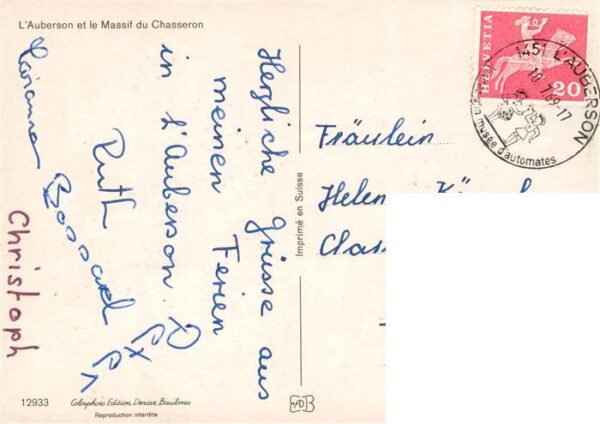 L'Auberson et le Massif du Chasseron
Herzliche Grüsse aus
meinen Ferien
in l'Auberson.
Ruth
Bossard
Christoph
Imprimé en Suisse
HELVETIA
20
1451 L'AUBERSON
musée d'automates
Fräulein
12933 Colorphoto Edition Deriaz Baulmes
Reproduction interdite